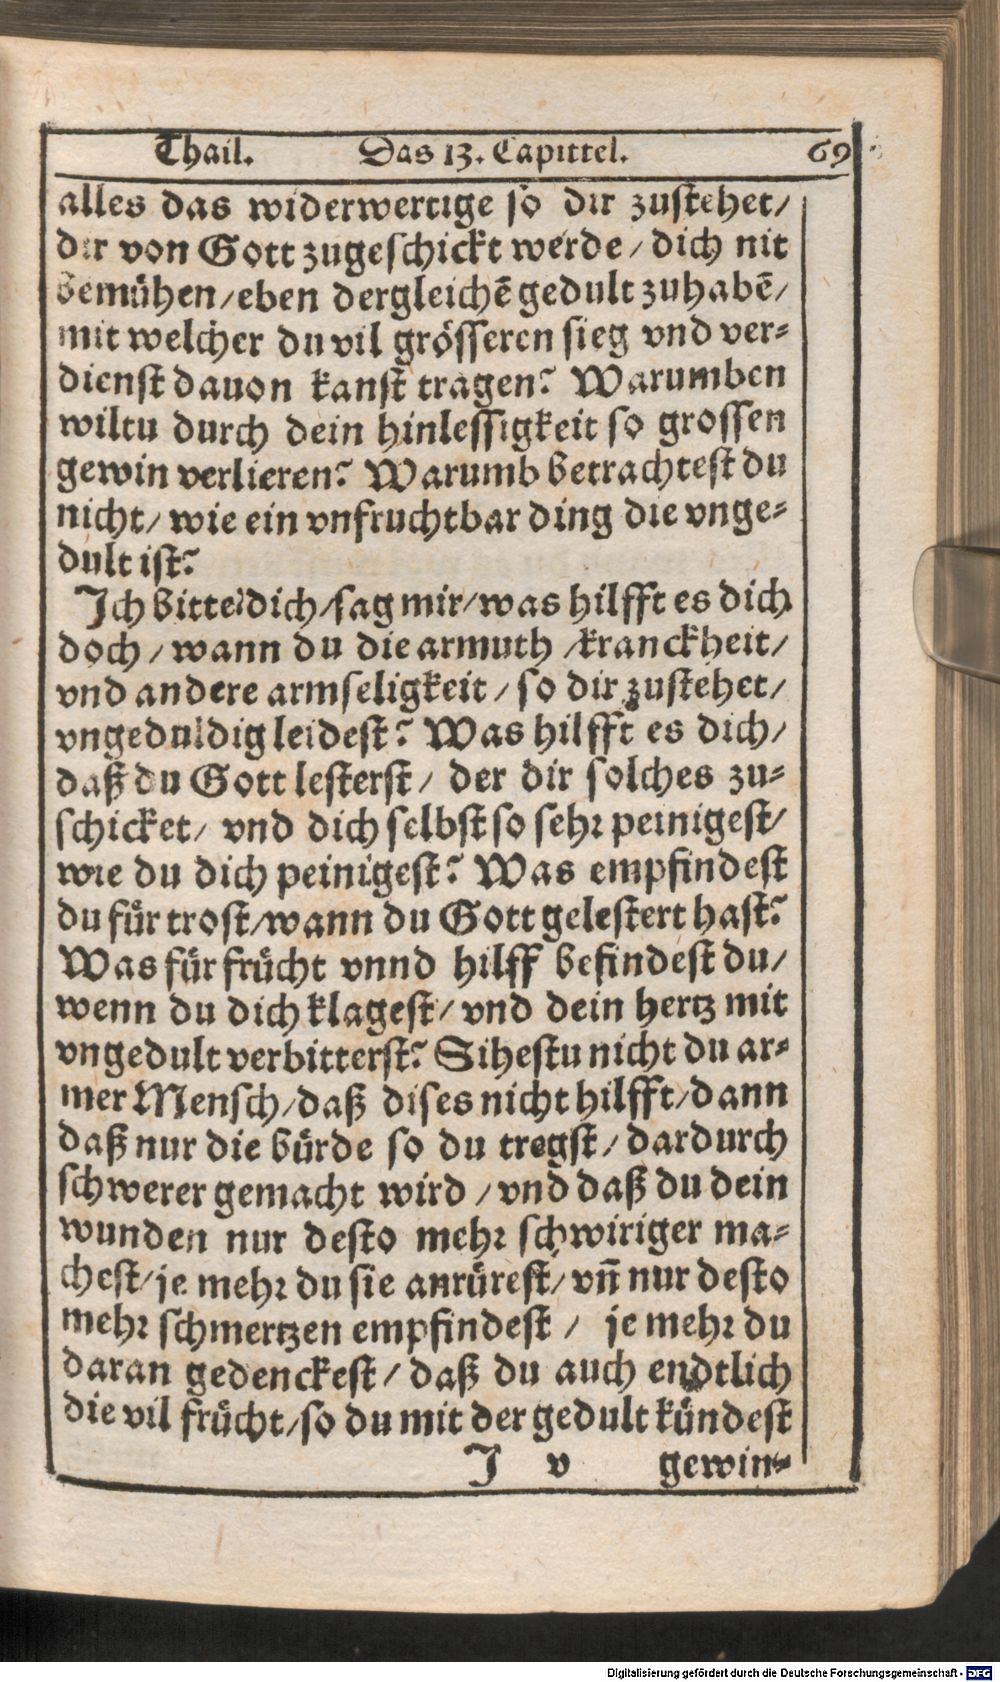 Thail. Das 13. Capittel. 69
alles das widerwertige so dir zustehet/
dir von Gott zugeschickt werde/ dich nit
bemühen/eben dergleichẽ gedult zuhabẽ/
mit welcher du vil grösseren sieg vnd ver-
dienst dauon kanst tragen? Warumben
wiltu durch dein hinlessigkeit so grossen
gewin verlieren? Warumb betrachtest du
nicht/ wie ein vnfruchtbar ding die vnge-
dult ist?
Ich bitte dich/sag mir/was hilfft es dich
doch/ wann du die armuth/kranckheit/
vnd andere armseligkeit/ so dir zustehet/
vngeduldig leidest? Was hilfft es dich/
daß du Gott lesterst/ der dir solches zu-
schicket/ vnd dich selbst so sehr peinigest/
wie du dich peinigest? Was empfindest
du für trost/wann du Gott gelestert hast?
Was für frücht vnnd hilff befindest du/
wenn du dich klagest/ vnd dein hertz mit
vngedult verbitterst? Sihestu nicht du ar-
mer Mensch/daß dises nicht hilfft/dann
daß nur die bürde so du tregst/ dardurch
schwerer gemacht wird/vnd daß du dein
wunden nur desto mehr schwiriger ma-
chest/je mehr du sie anrürest/ vñ nur desto
mehr schmertzen empfindest/ je mehr du
daran gedenckest/ daß du auch endtlich
die vil frücht/so du mit der gedult kündest
J v gewin-
Digitalisierung gefördert durch die Deutsche Forschungsgemeinschaft - DFG